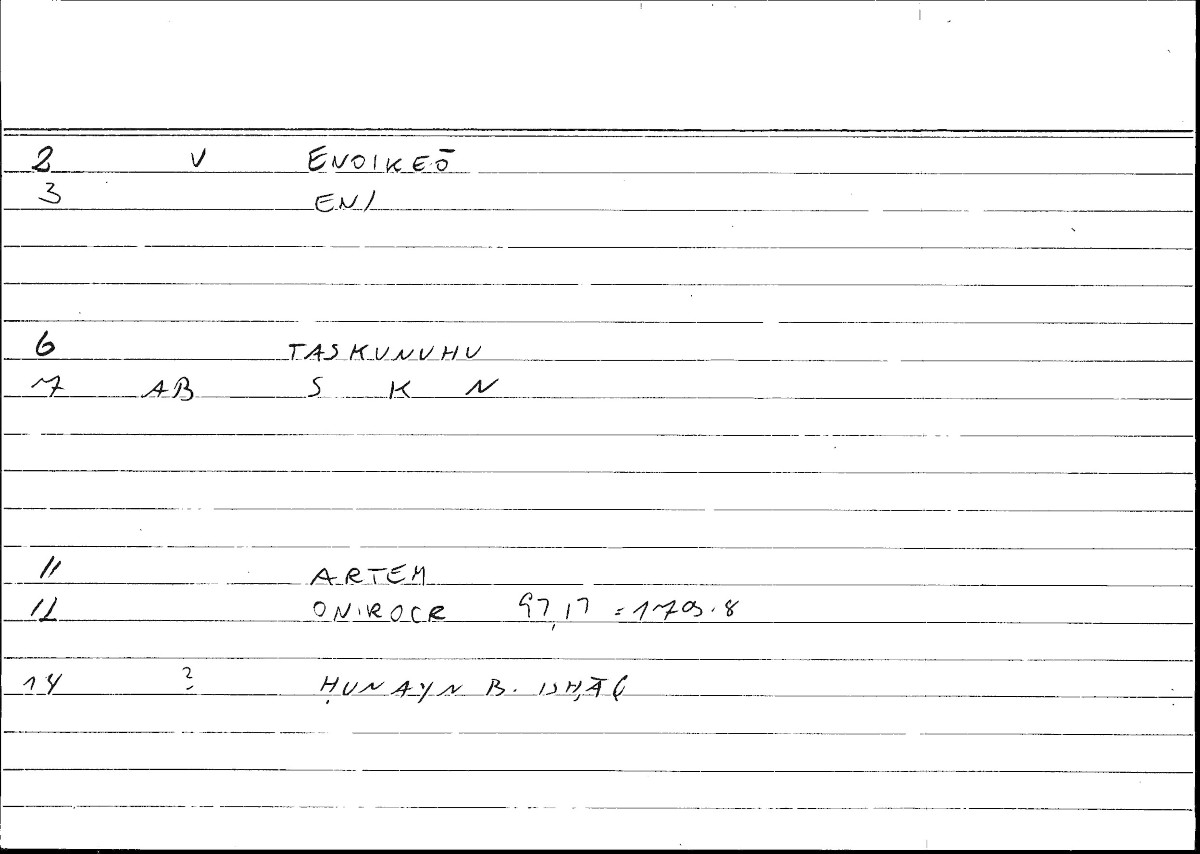 2 V ENOIKEŌ
3 EN/
6 TASKUNUHU
7 AB S K N
11 ARTEM
12 ONIROCR 97,17 = 179.8
14 ? ḤUNAYN B. ISḤĀQ